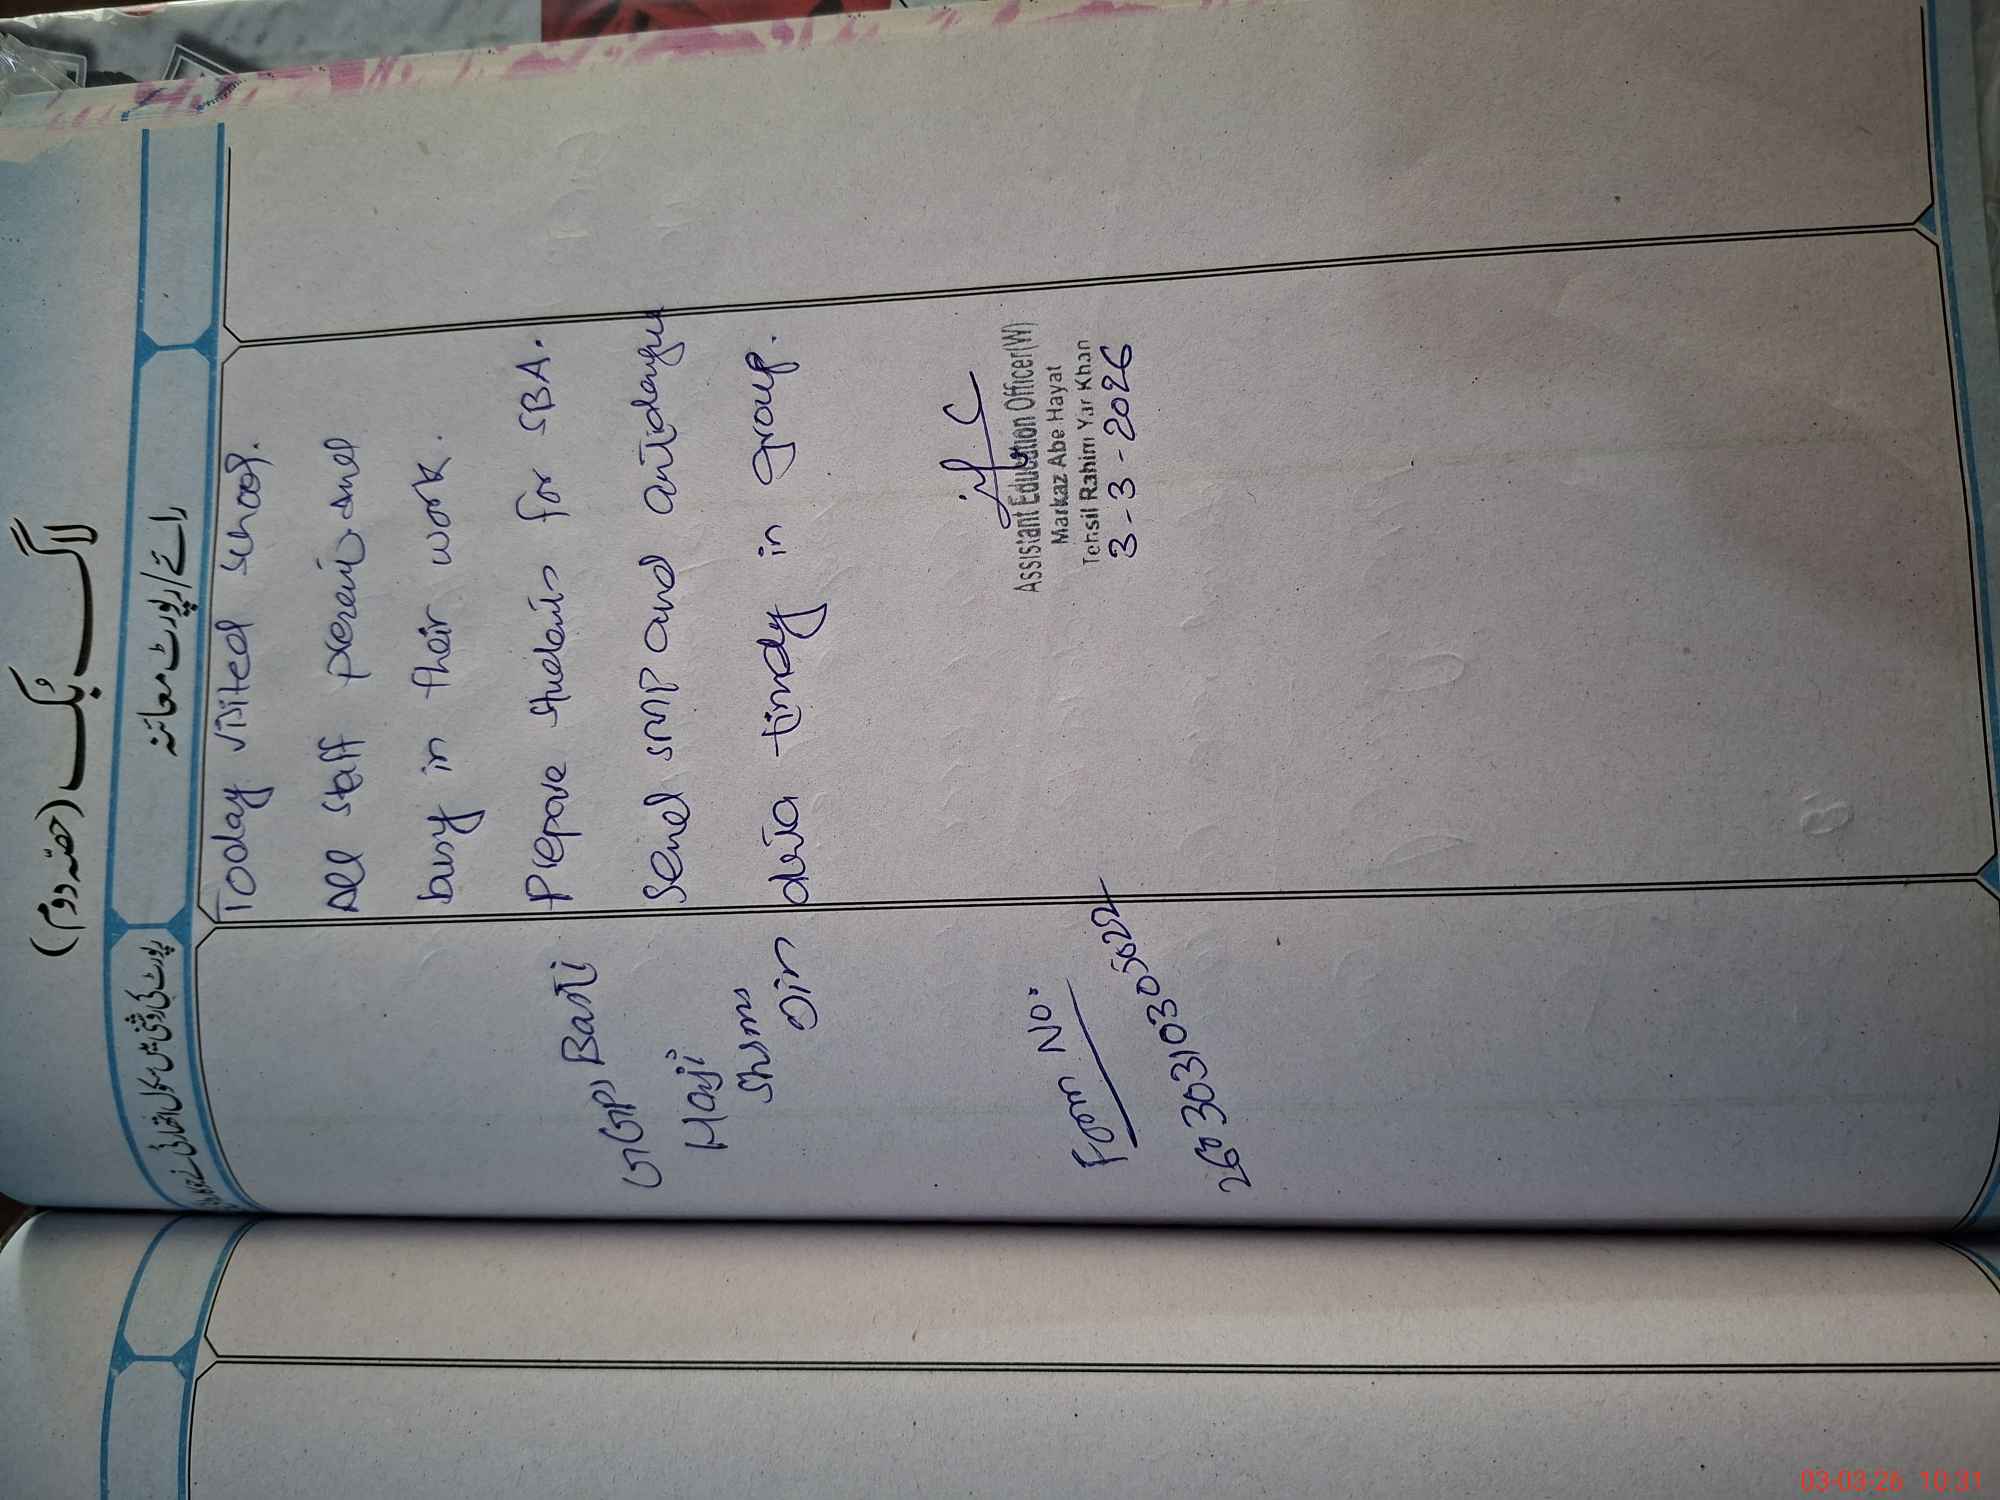 لاگ بُک (حصّہ دوم)
رائے/رپورٹ معائنہ
رپورٹ کی روشنی میں سکول اتھارٹی نے
Today visited school.
All staff present and
busy in their work.
Prepare students for SBA.
Send SMP and antidengue
data timely in group.
Assistant Education Officer(W)
Markaz Abe Hayat
Tehsil Rahim Yar Khan
3-3-2026
GGPS Basti
Haji
Shams
Din
Form No:
03-03-26 10:31